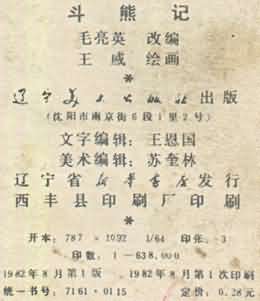 斗熊记
毛亮英 改编
王威 绘画
*
辽宁美术出版社出版
(沈阳市南京街6段1里2号)
文字编辑：王恩国
美术编辑：苏奎林
辽宁省新华书店发行
西丰县印刷厂印刷
*
开本：787×1092 1/64 印张：3
印数：1—638,000
1982年8月第1版 1982年8月第1次印刷
统一书号：7161·0115 定价：0.28元